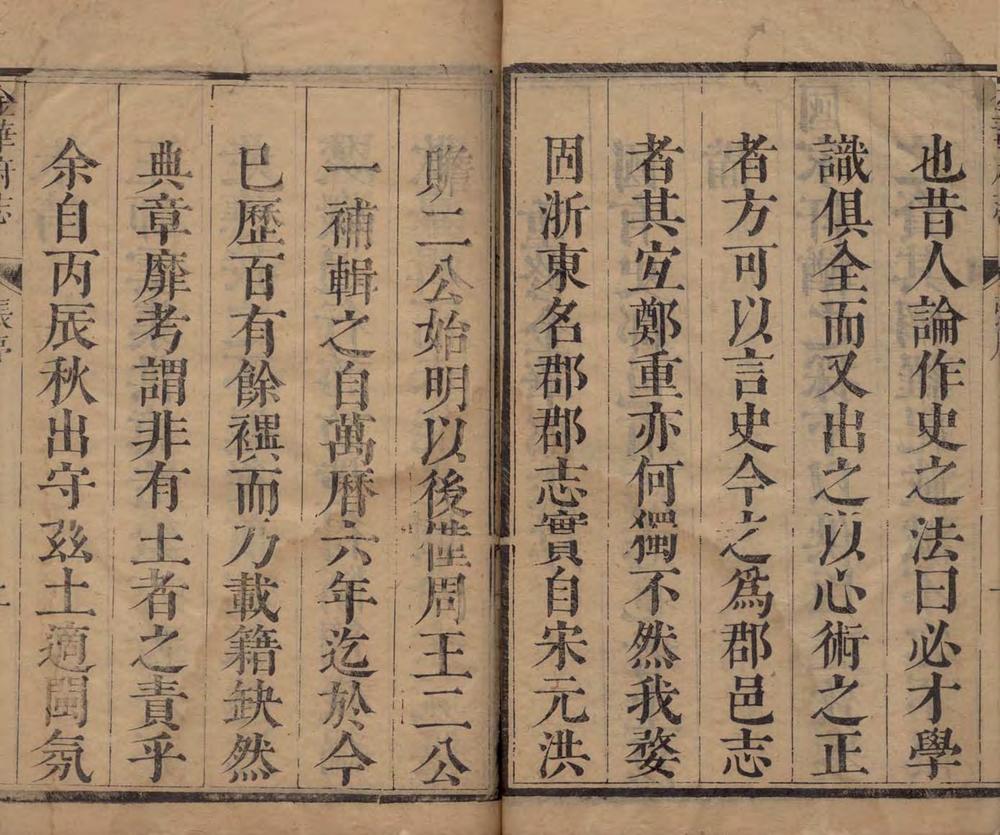 也昔人論作史之法曰必才學
識俱全而又出之以心術之正
者方可以言史今之爲郡邑志
者其宐鄭重亦何獨不然我婺
固浙東名郡郡志實自宋元洪
贍二公始明以後僅周王二公
一補輯之自萬曆六年迄於今
已歷百有餘禩而乃載籍缺然
典章靡考謂非有土者之責乎
余自丙辰秋出守兹土適閩氛
金華府志